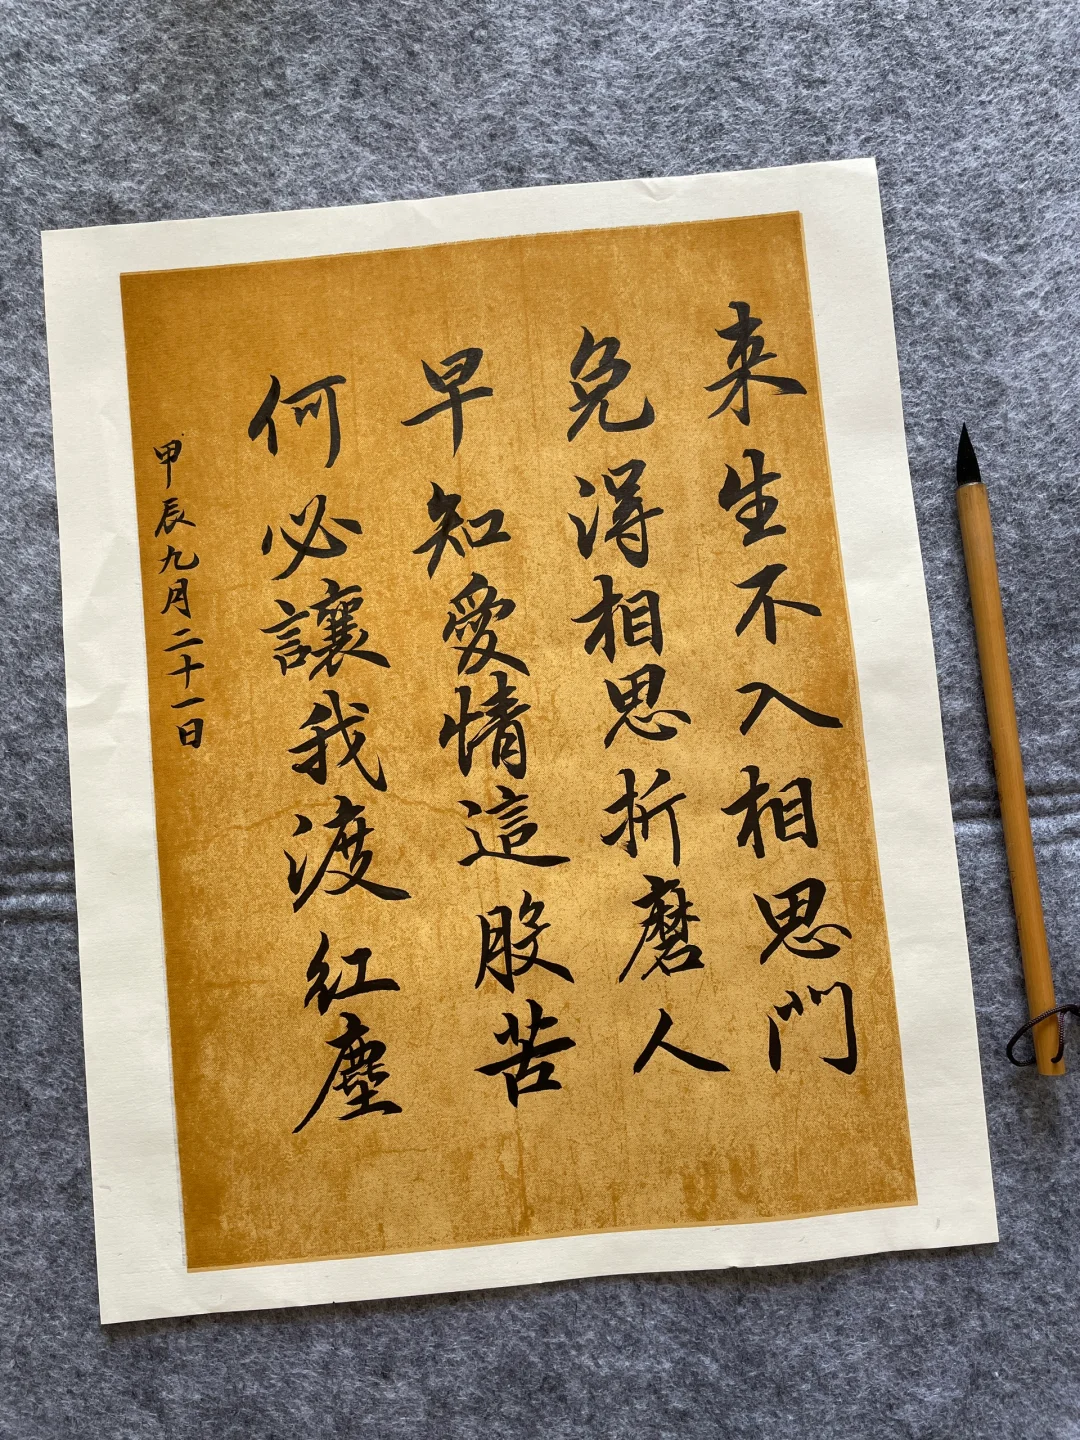 來生不入相思門
免得相思折磨人
早知愛情這股苦
何必讓我渡紅塵
甲辰九月二十一日